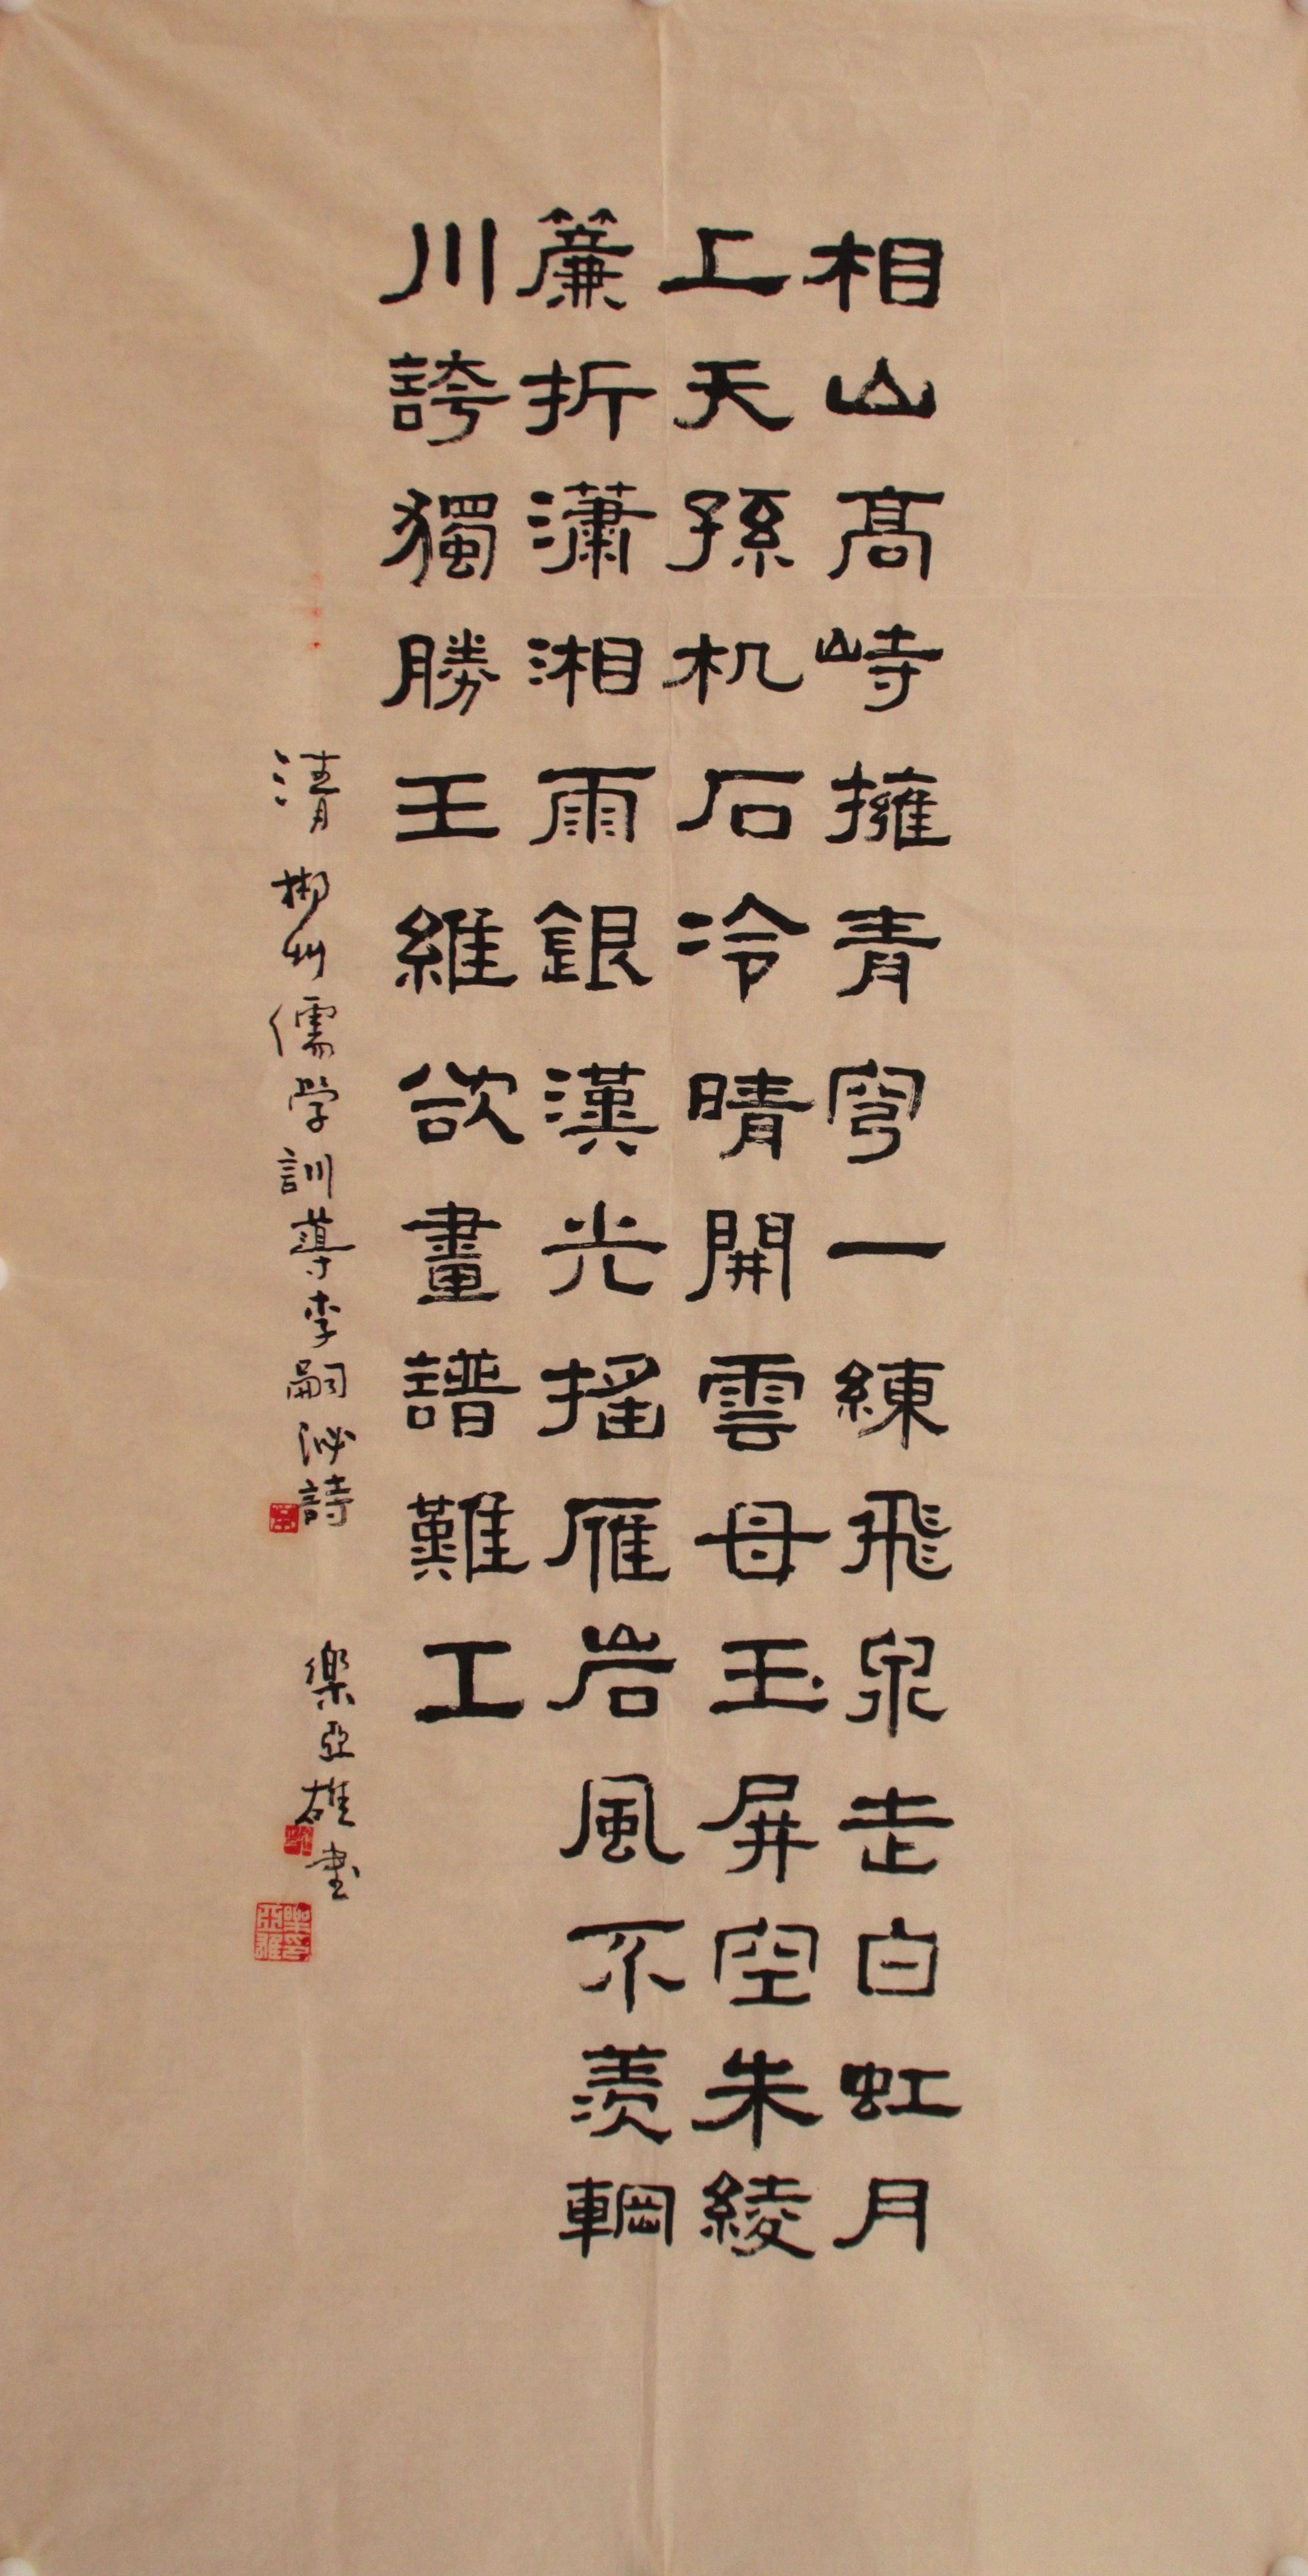 相山高峙擁青穹一練飛泉走白虹月
上天孫机石冷晴開雲母玉屏空朱綾
簾折瀟湘雨銀漢光搖雁岩風不羨輞
川誇獨勝王維欲畫譜難工
清郴州儒学訓導李嗣泌詩
樂亞雄书